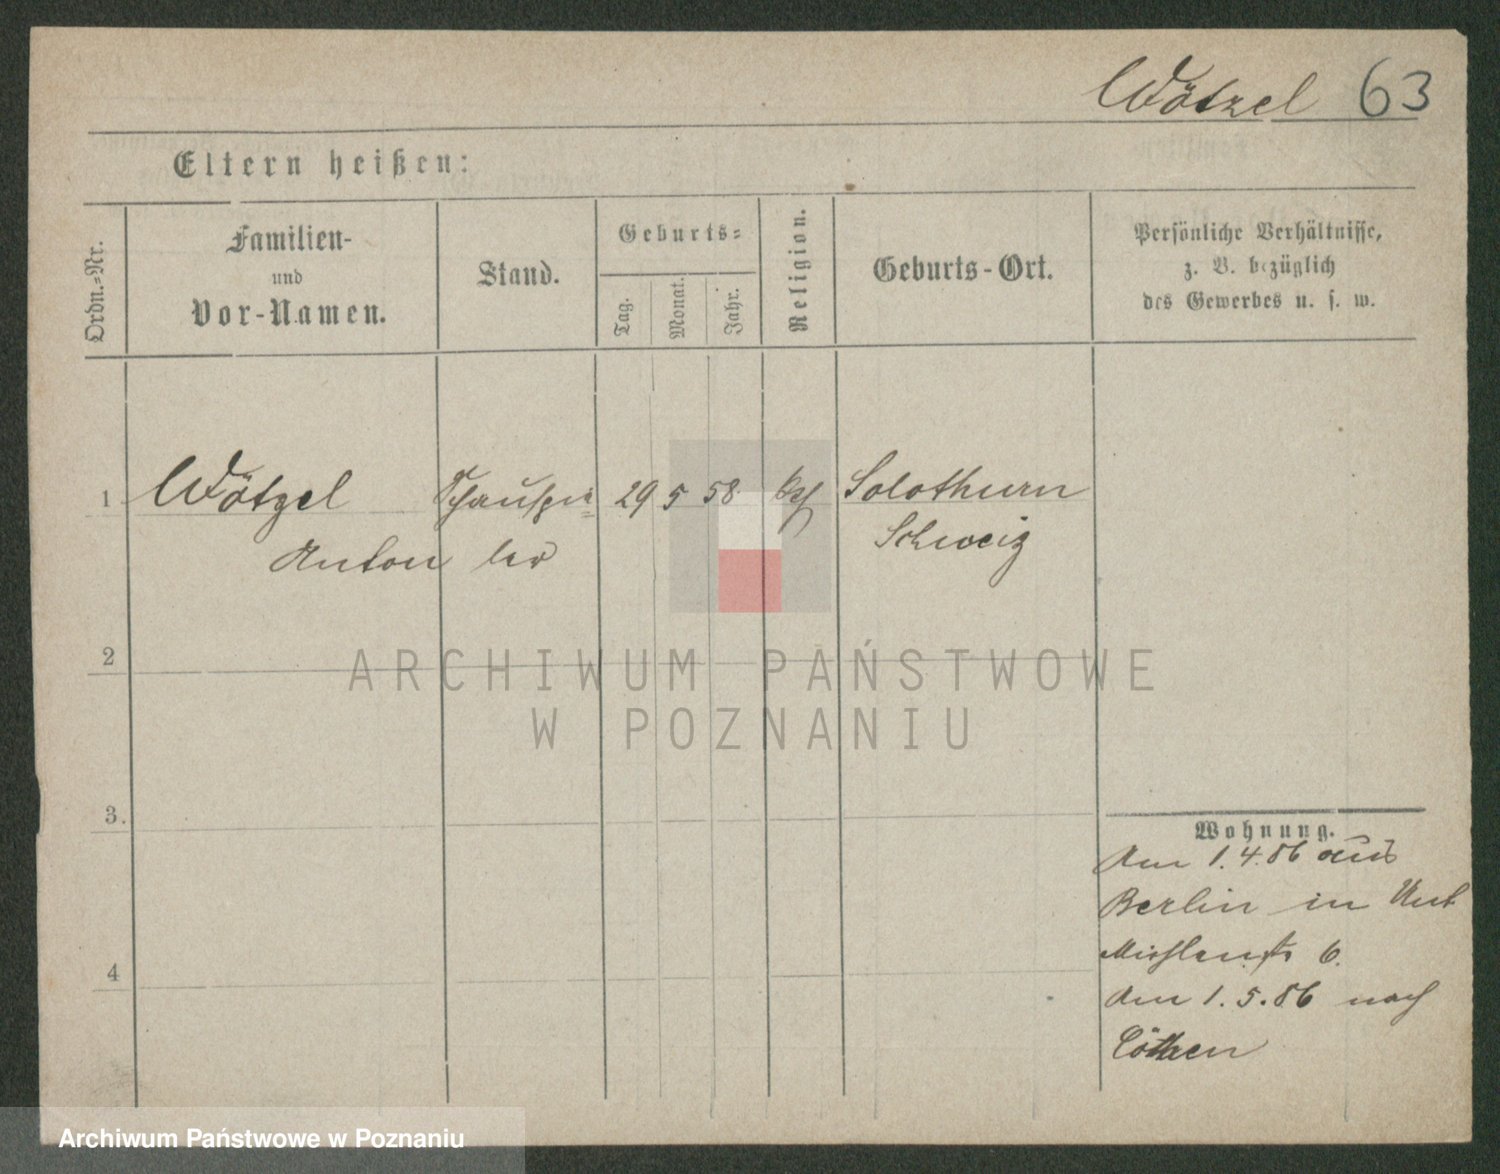 Wötzel 63
Eltern heißen:
Ordn.-Nr.
Familien-
und
Vor-Namen.
Stand.
Geburts-
Tag.
Monat.
Jahr.
Religion.
Geburts-Ort.
Persönliche Verhältnisse,
z. B. bezüglich
des Gewerbes u. s. w.
1 Wötzel Schauspie= 29 5 58 Solothurn
Anton ler Schweiz
2
ARCHIWUM PAŃSTWOWE
W POZNANIU
3.
Wohnung.
Am 1.4.86 aus
Berlin in
Mühlenstr 6.
4
Am 1.5.86 nach
Cöthen
Archiwum Państwowe w Poznaniu